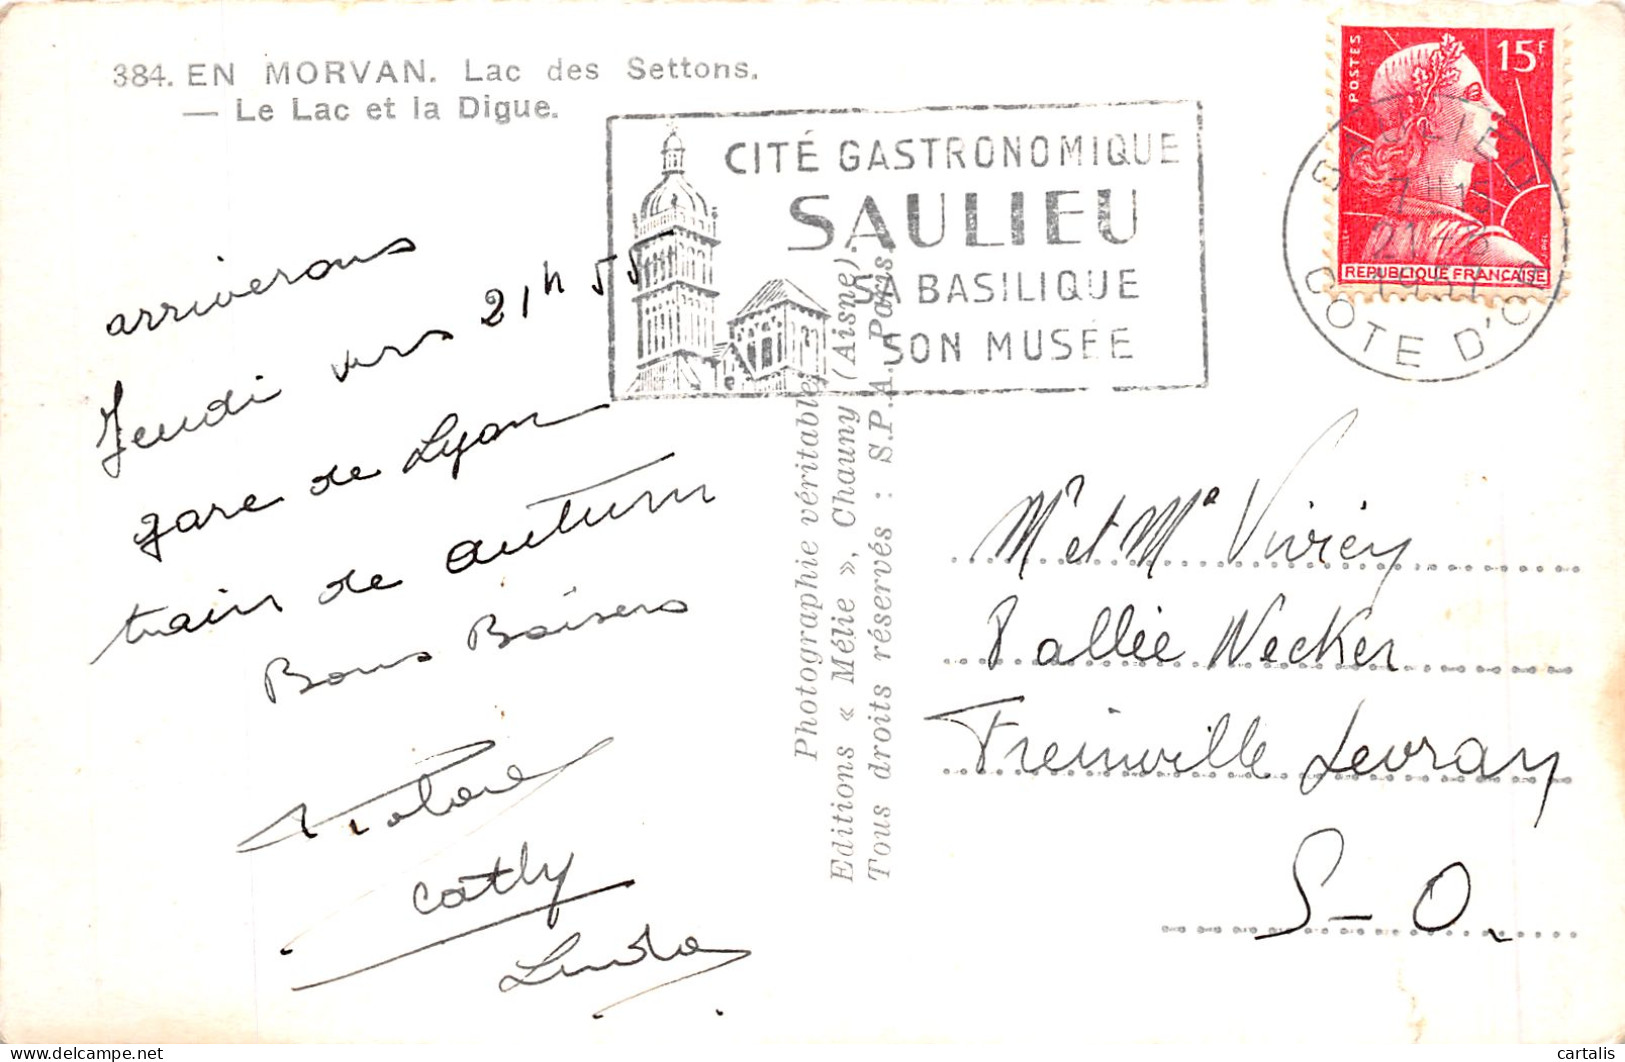 384. EN MORVAN. Lac des Settons.
— Le Lac et la Digue.
CITÉ GASTRONOMIQUE
SAULIEU
SA BASILIQUE
SON MUSÉE
POSTES
15F
REPUBLIQUE FRANÇAISE
SAULIEU
COTE D'OR
arriverons
Jeudi vers 21h 55
gare de Lyon
train de autun
Bons Baisers
Cathy
Linda
Photographie véritable
Editions « Mélie », Chauny (Aisne).
Tous droits réservés : S.P.A. Paris.
Mr et Me Viviey
8 allée Necker
Freinville Sevran
S-O.
cartalis